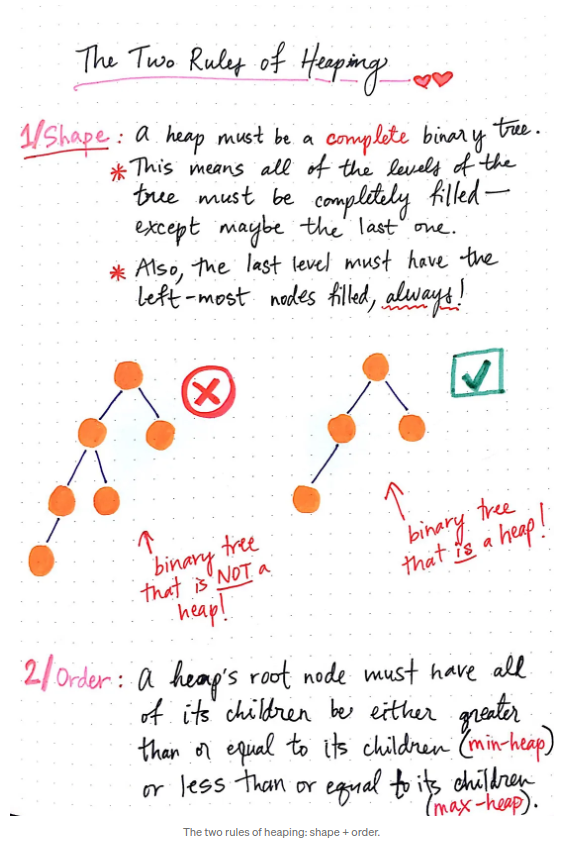 The Two Rules of Heaping
1/Shape: a heap must be a complete binary tree.
* This means all of the levels of the
tree must be completely filled—
except maybe the last one.
* Also, the last level must have the
left-most nodes filled, always!
binary tree
that is NOT a
heap!
binary tree
that is a heap!
2/Order: a heap's root node must have all
of its children be either greater
than or equal to its children (min-heap)
or less than or equal to its children
(max-heap).
The two rules of heaping: shape + order.